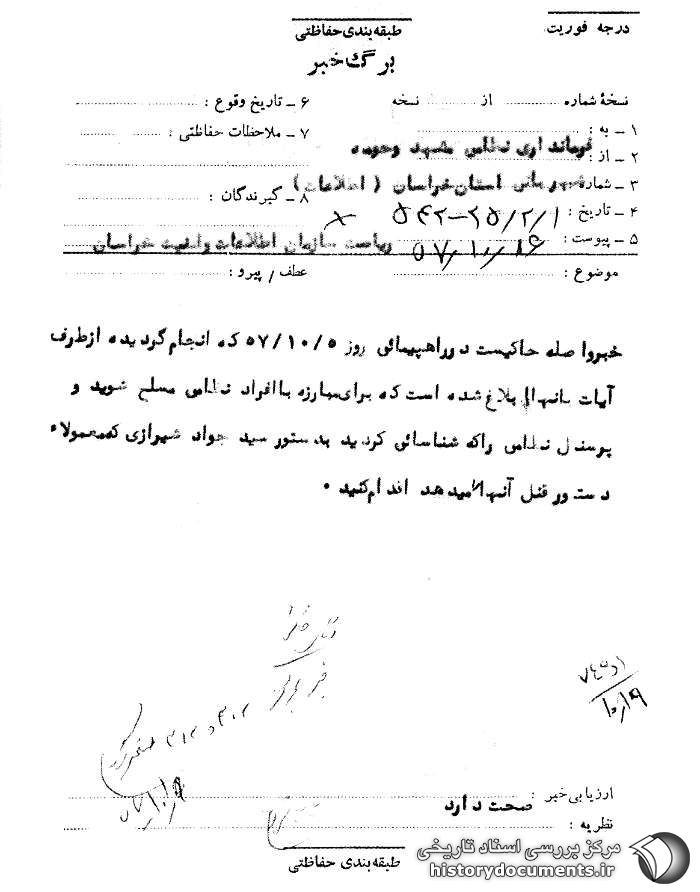 درجه فوریت
طبقه‌بندی حفاظتی
برگ خبر
نسخهٔ شماره ............ از ............ نسخه
۱ ـ به :
۲ ـ از : فرمانداری نظامی مشهد وحومه
۳ ـ شماره شهربانی استان خراسان ( اطلاعات )
۴ ـ تاریخ : ۵۴۲-۲۵/۲/۱
۵ ـ پیوست :
۶ ـ تاریخ وقوع :
۷ ـ ملاحظات حفاظتی :
۸ ـ گیرندگان :
× ریاست سازمان اطلاعات وامنیت خراسان
موضوع :
عطف / پیرو :
خبرواصله حاکیست دوراهپیمائی روز ۵۷/۱۰/۵ که انجام گردیده ازطرف
آیات بانها ابلاغ شده است که برای مبارزه باافراد نظامی مسلح شوید و
پرسنل نظامی راکه شناسائی کردید بدستور سید جواد شیرازی که معمولاء
دستور قتل آنهارا میدهد اقدام کنید .
ارزیابی خبر : صحت دارد
نظریه :
طبقه بندی حفاظتی
مرکز بررسی اسناد تاریخی
historydocuments.ir